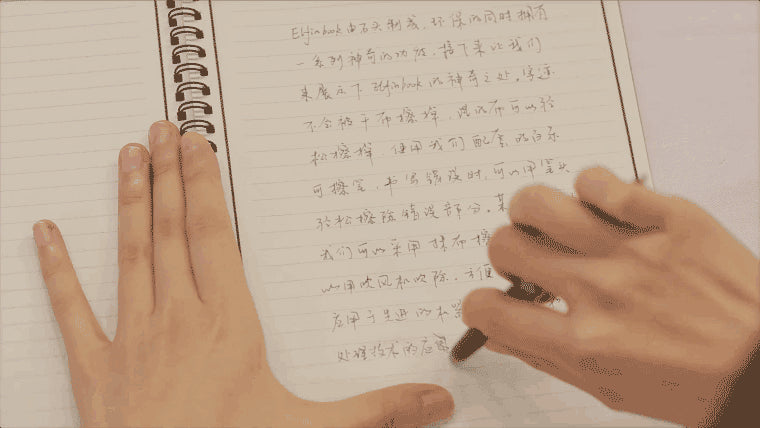 Elfinbook由石头制成,环保的同时拥有
一系列神奇的功效,接下来让我们
来展示下Elfinbook的神奇之处。字迹
不会被干布擦掉,湿的布可以轻
松擦掉,使用我们配套的百乐
可擦笔,书写错误时,可以用笔头
轻松擦除错误部分。某
我们可以采用抹布擦
以用吹风机吹除,方便
应用于先进的
处理技术的应用